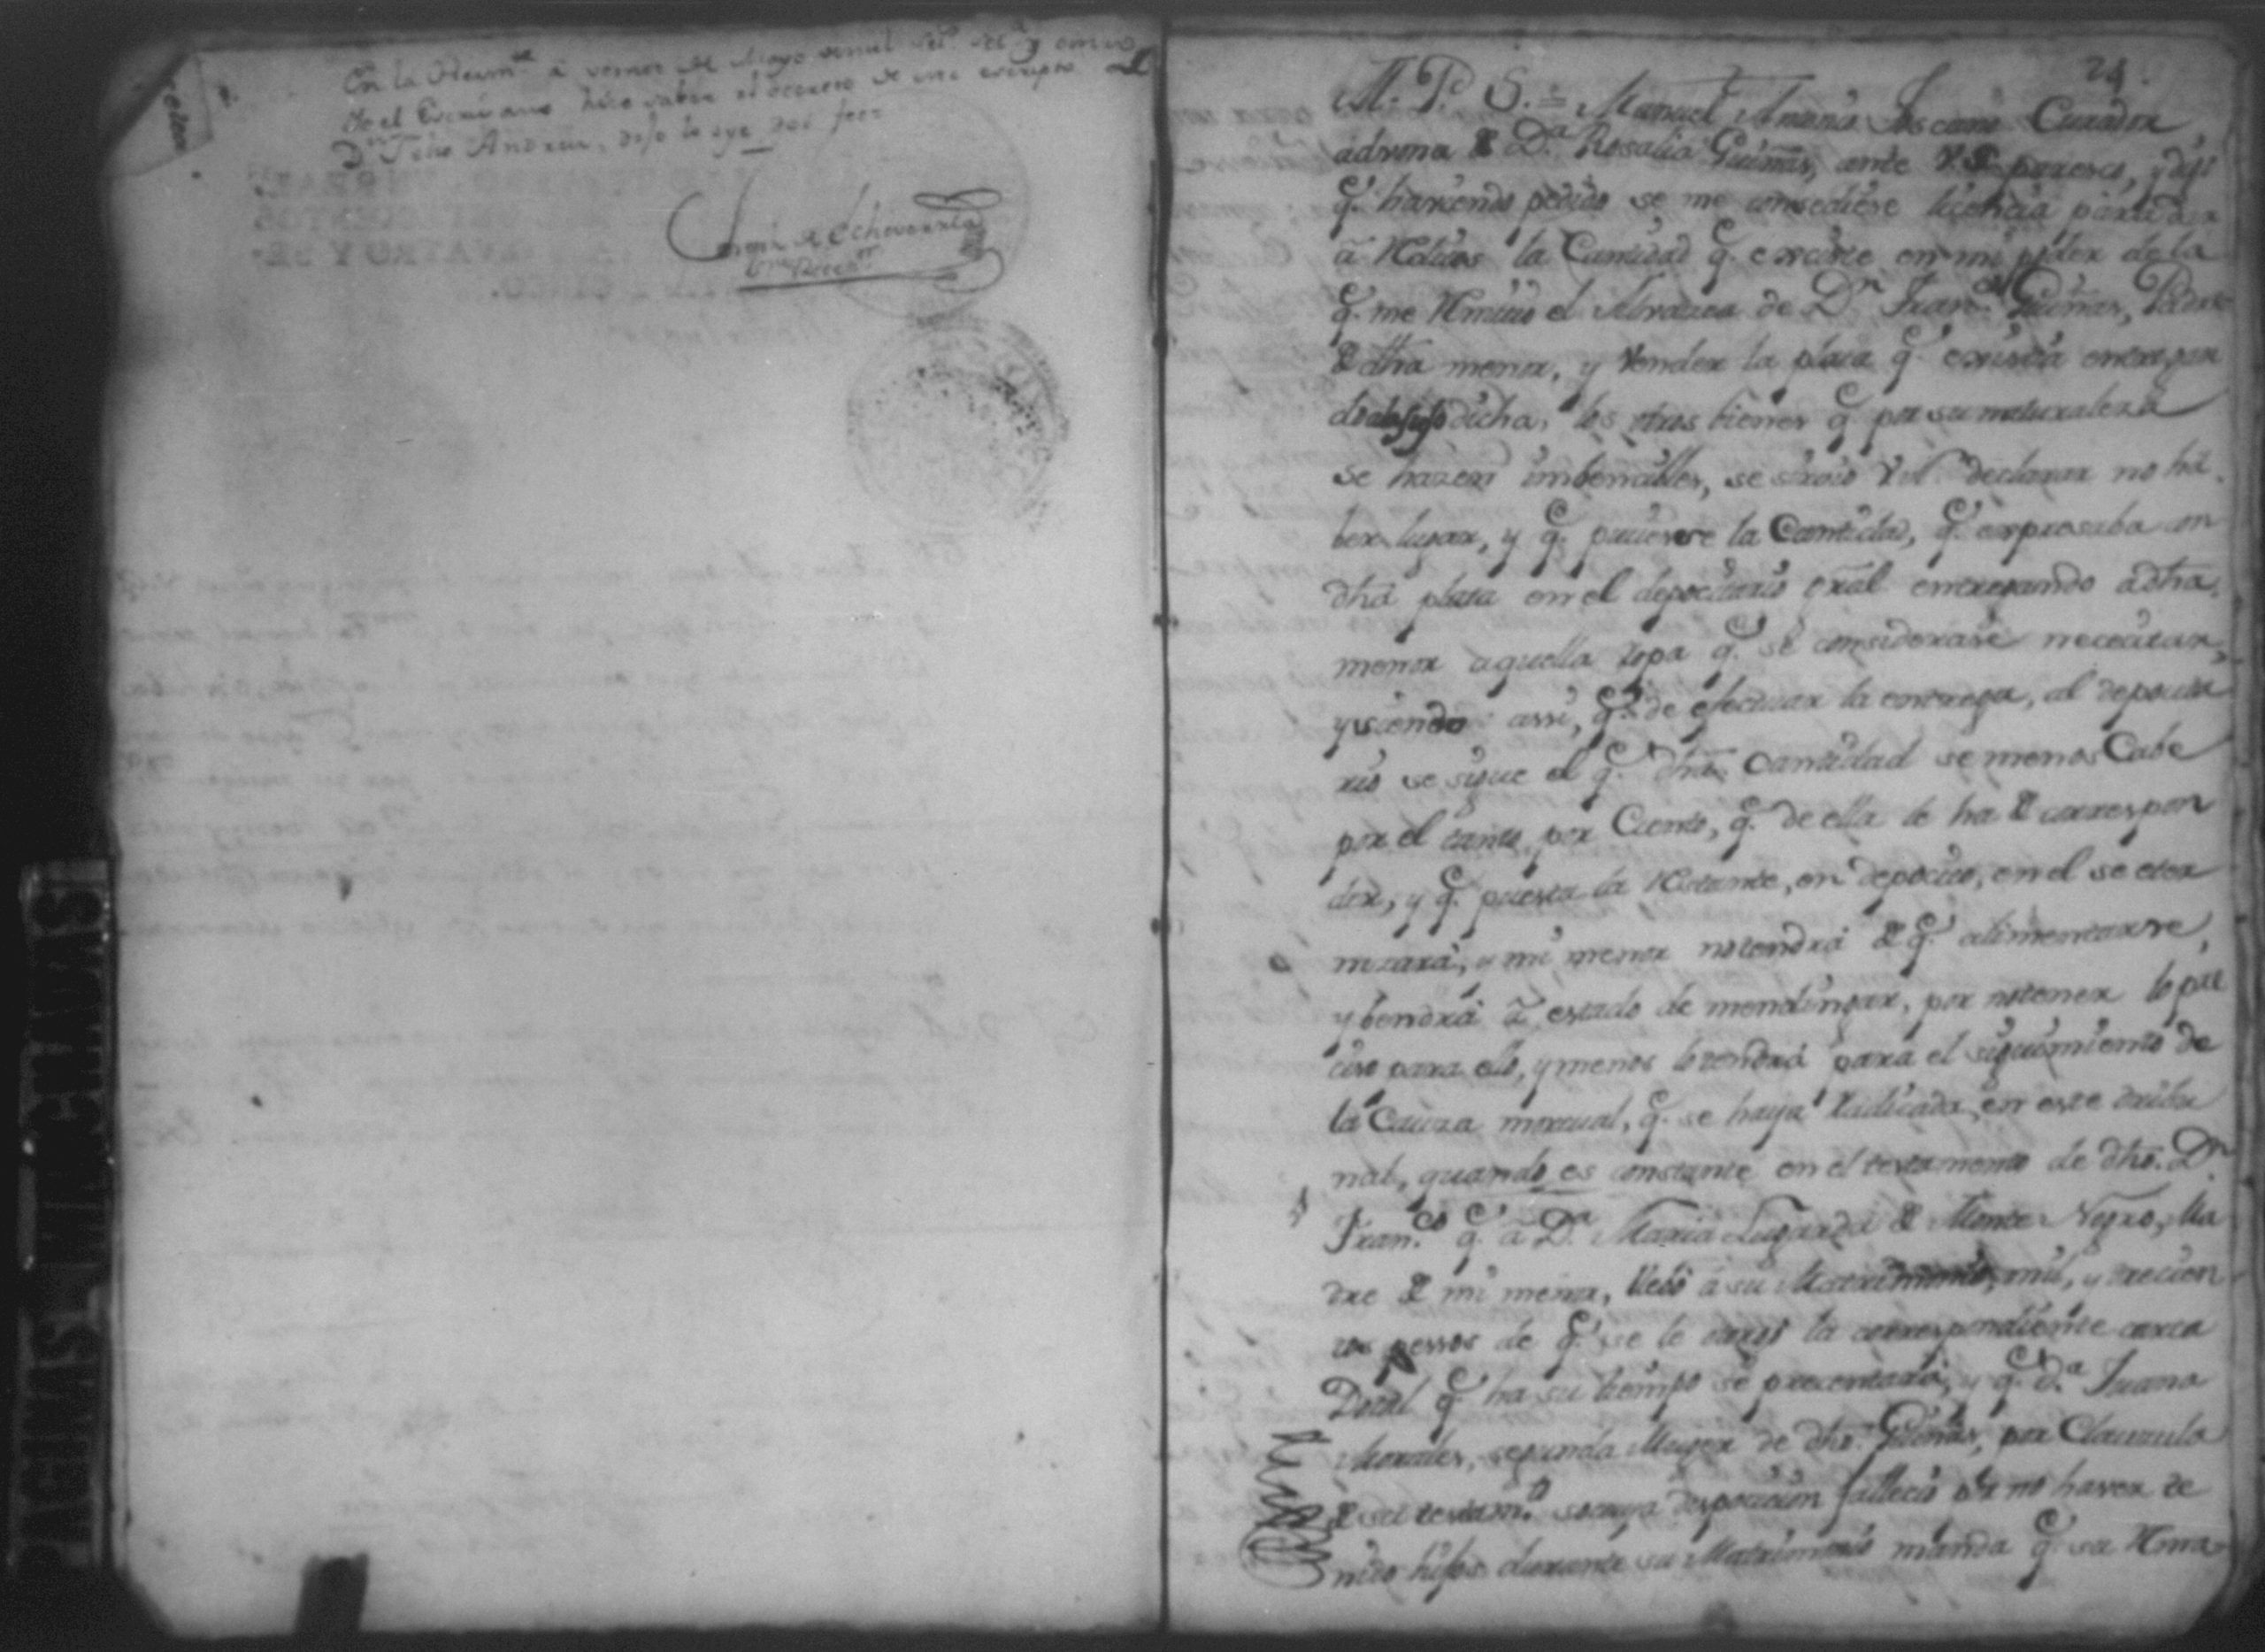 En la Recep.n à veinte de Mayo de mil set.s ses.ta y cinco
Yo el Escrivano hize saber el decreto de este escripto a
D.n Felis Andreu, dijo lo oye doi fee
Echevarria
24.
M. P. S. = Manuel Toscano Curador
ád rona de D.a Rosalia Guimas, ante V.A. paresco, y digo
q.e haviendo pedido se me consediese licencia para dar
ã Reditos la Cantidad q.e exciste en mi poder de la
q.e me Remitió el Albazea de D.n Fran.co Guimas, Padre
de dha menor, y vender la plata q.e existia entregan
do a la suso dicha, los otros bienes q.e por su naturaleza
se hazen imbenibles, se sirvió V.A. declarar no ha
ber lugar, y q.e pusiesse la Cantidad, q.e expresaba con
dha plata en el depocitario gral entregando a dha
menor aquella ropa q.e se considerase necesitar,
y siendo assi, q.e de efectuar la entrega, al deposita
rio se sigue el q.e dha Cantidad se menos Cabe
por el tanto por Ciento, q.e de ella le ha de correspon
der, y q.e puesta la Restante, en depocito, en el se eter
nizará, y mi menor no tendrá de q.e alimentarse,
y bendrá ã estado de mendingar, por no tener lo pre
ciso para ello, y menos lo tendrá para el siguimiento de
la Cauza mortual, q.e se haya Radicada, en este tribu
nal, quando es constante en el testamento de dho. D.n
Fran.co q.e à D.a Maria Lugarda de Monte Negro, Ma
dre de mi menor, llebó a su Matrimonio, mil, y trecien
tos pessos de q.e se le otorgó la correspondiente carta
Dotal q.e ha su tiempo se precentará, y q.e D.a Juana
Morales, segunda Muger de dho. Guimas, por Clausula
de su testam.to so cuya disposicion fallecio por no haver te
nido hijos durante su Matrimonio manda q.e su Rema